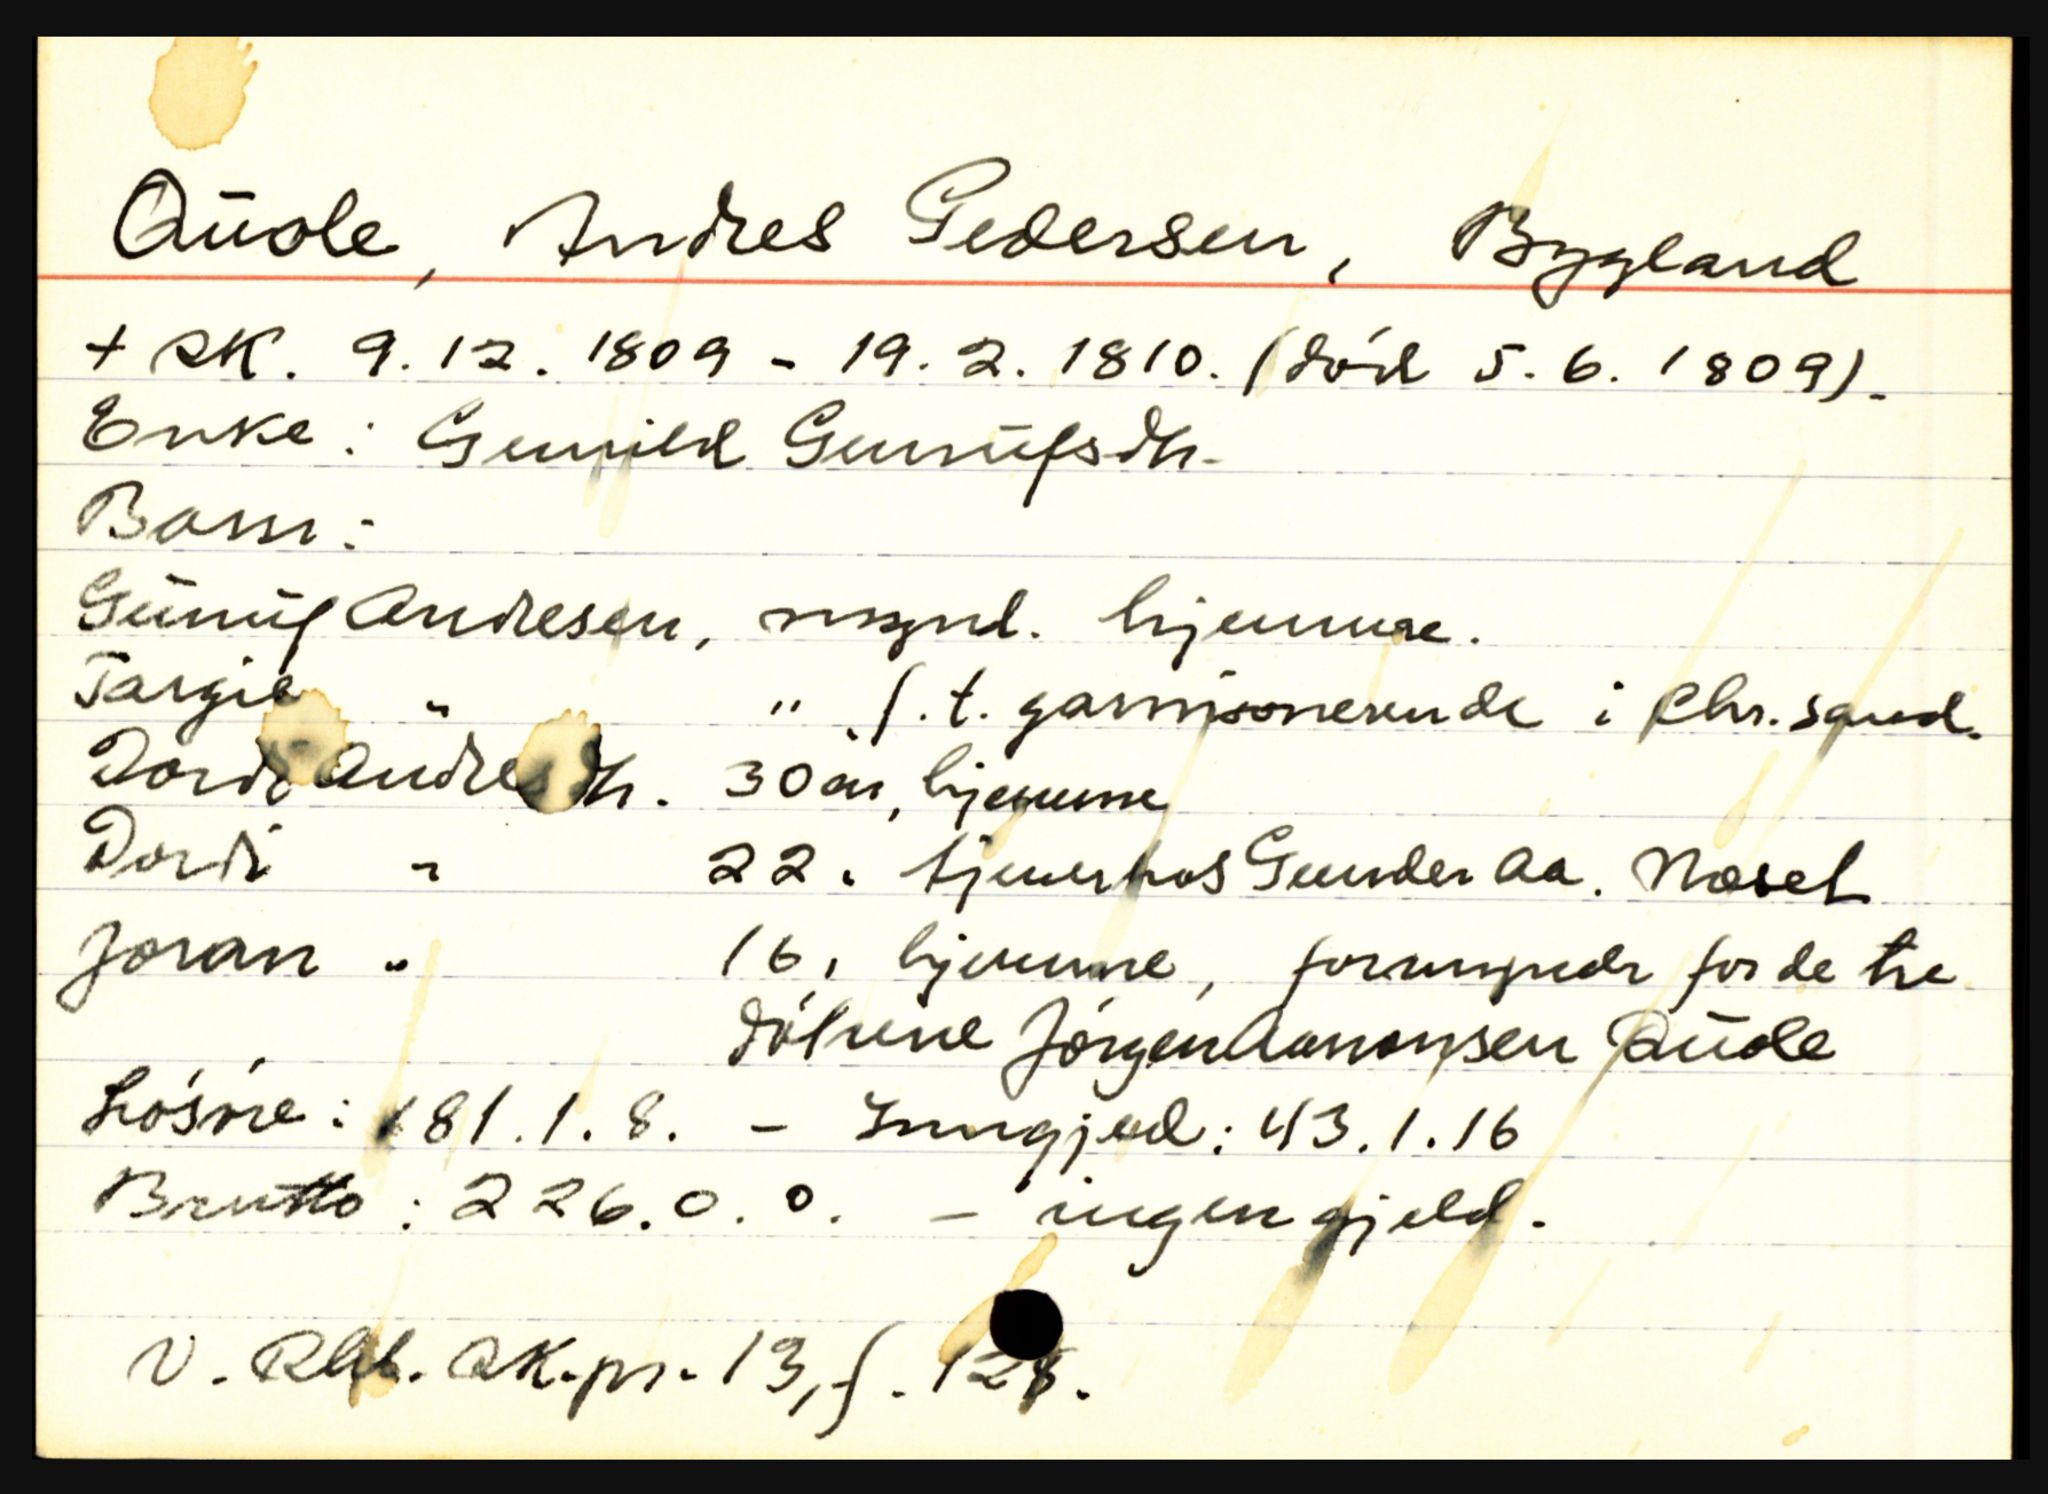 Quåle, Andres Pedersen, Bygland
+ RK. 9.12.1809 - 19.2.1810. (död 5.6.1809).
Enke: Gunild Gunnufsdtr.
Barn:
Gunnuf Andresen, myndl. hjemme.
Targie " " f.t. garnisonerende i Chr.sand.
Dordi Andresdtr. 30 år, hjemme
Dordi " 22 " tjener hos Gunder Aa. Næset
Joran " 16, hjemme, formynder for de tre
döttrene Jörgen Aanonsen Quåle
Lösöre: 181.1.8. - Inngjeld: 43.1.16
Brutto: 226.0.0. - ingen gjeld.
V. Rbl. RK.pr. 13, f. 128.